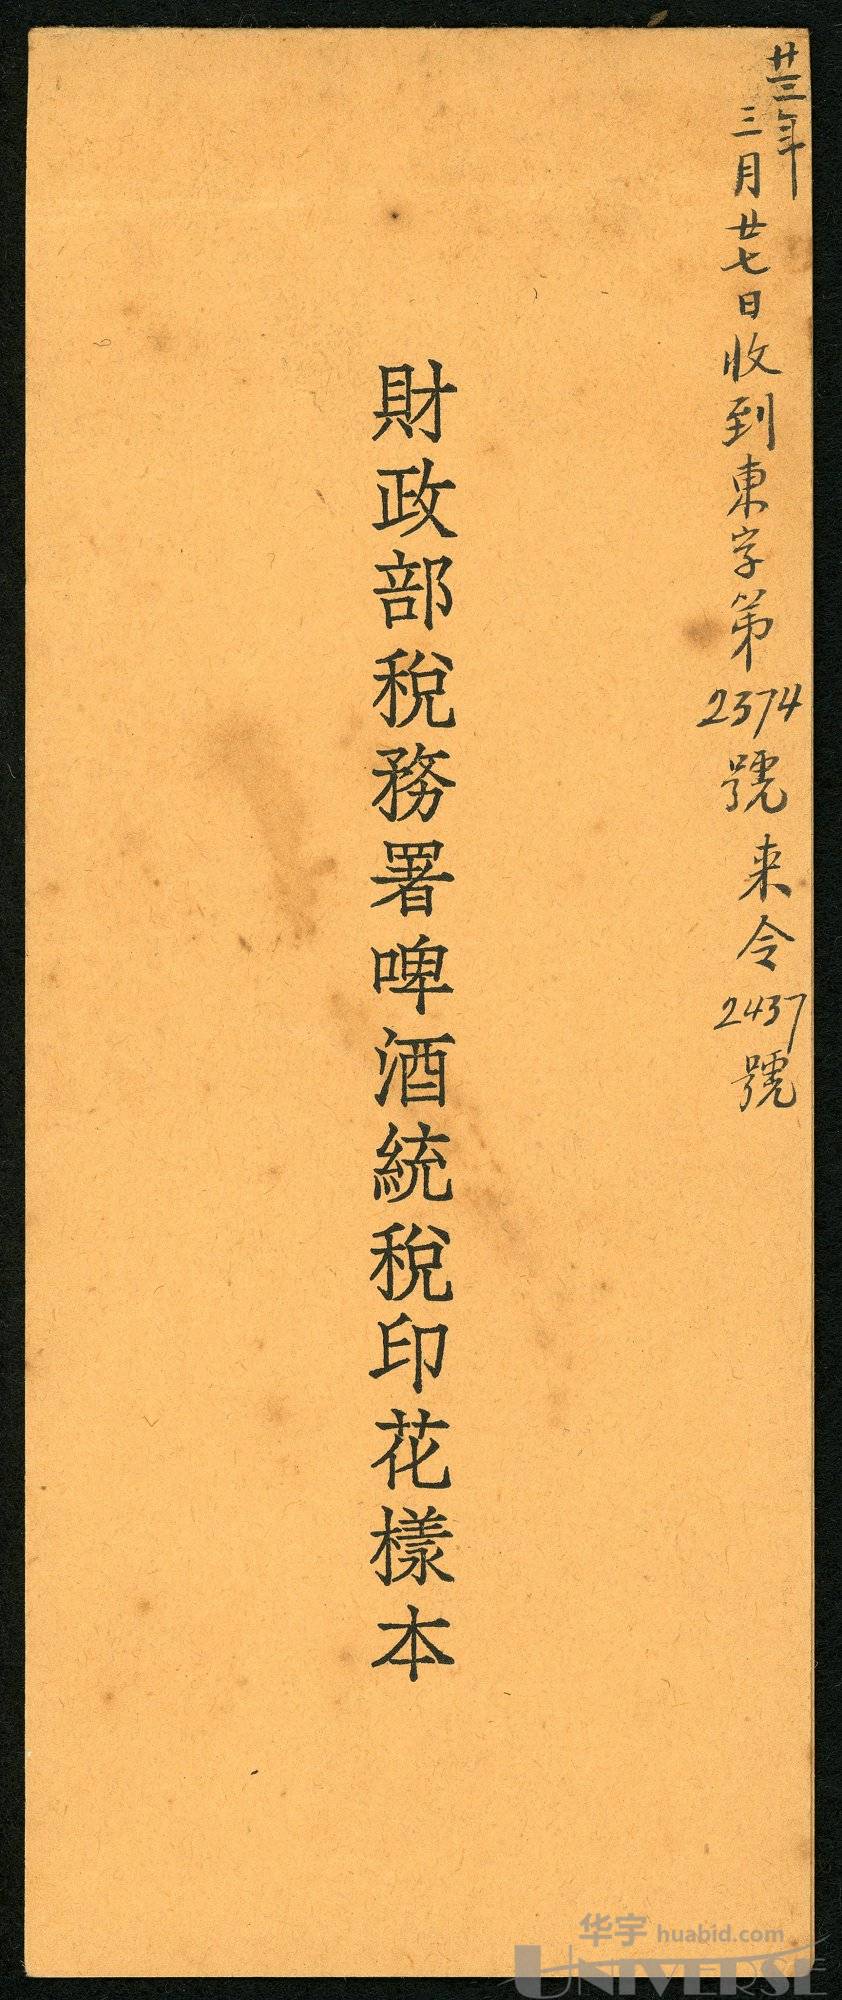 廿三年
三月廿七日收到東字第2374號来令2437號
財政部稅務署啤酒統稅印花樣本
华宇 huabid.com
UNIVERSE